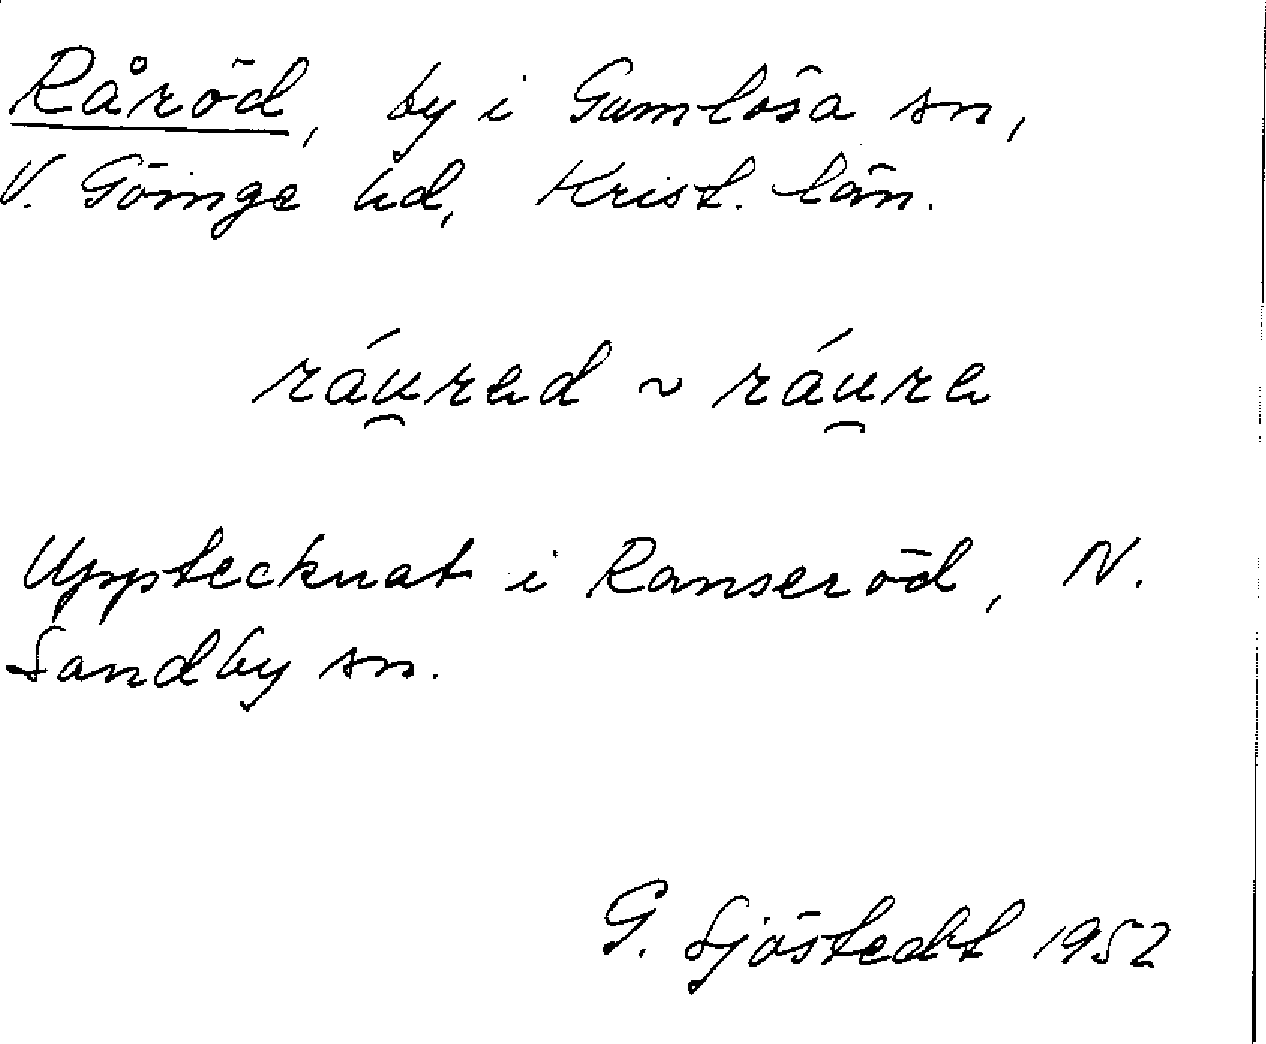 Råröd, by i Gumlösa sn,
V. Göinge hd, Krist. län.
ráu̯rəd ~ ráu̯rə
Upptecknat i Ranseröd, N.
Sandby sn.
G. Sjöstedt 1952